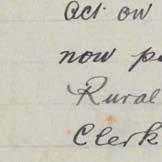 act on
now p
Rural
Clerk